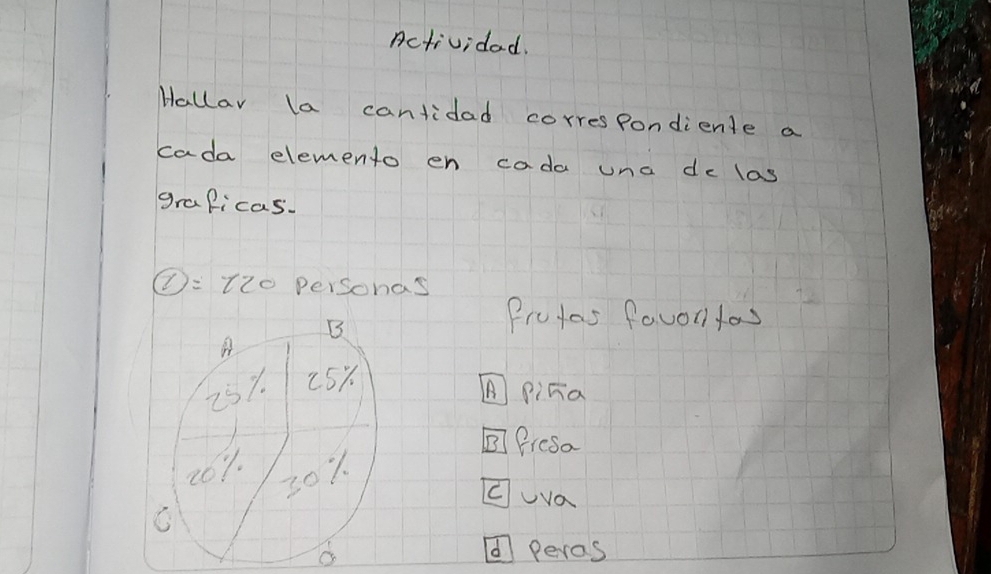 Actividad.
Hallar la cantidad correspondiente a
cada elemento en cada una de las
graficas.
①= 120 personas
frutas favoritas
A B
25% 25%
20% 30%
C d
A piña
B fresa
C uva
d peras